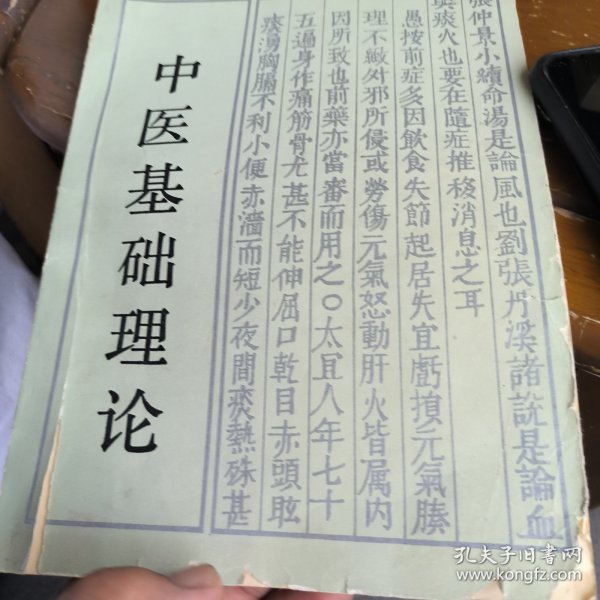 中医基础理论
張仲景小續命湯是論風也劉張丹溪諸說是論血
與痰火也要在隨症推移消息之耳
愚按前症多因飲食失節起居失宜虧損元氣腠
理不緻外邪所侵或勞傷元氣怒動肝火皆属内
因所致也前藥亦當審而用之○太宜人年七十
五遍身作痛筋骨尤甚不能伸屈口乾目赤頭眩
痰湧胸膈不利小便赤濇而短少夜間痰熱殊甚
孔夫子旧书网
www.kongfz.com